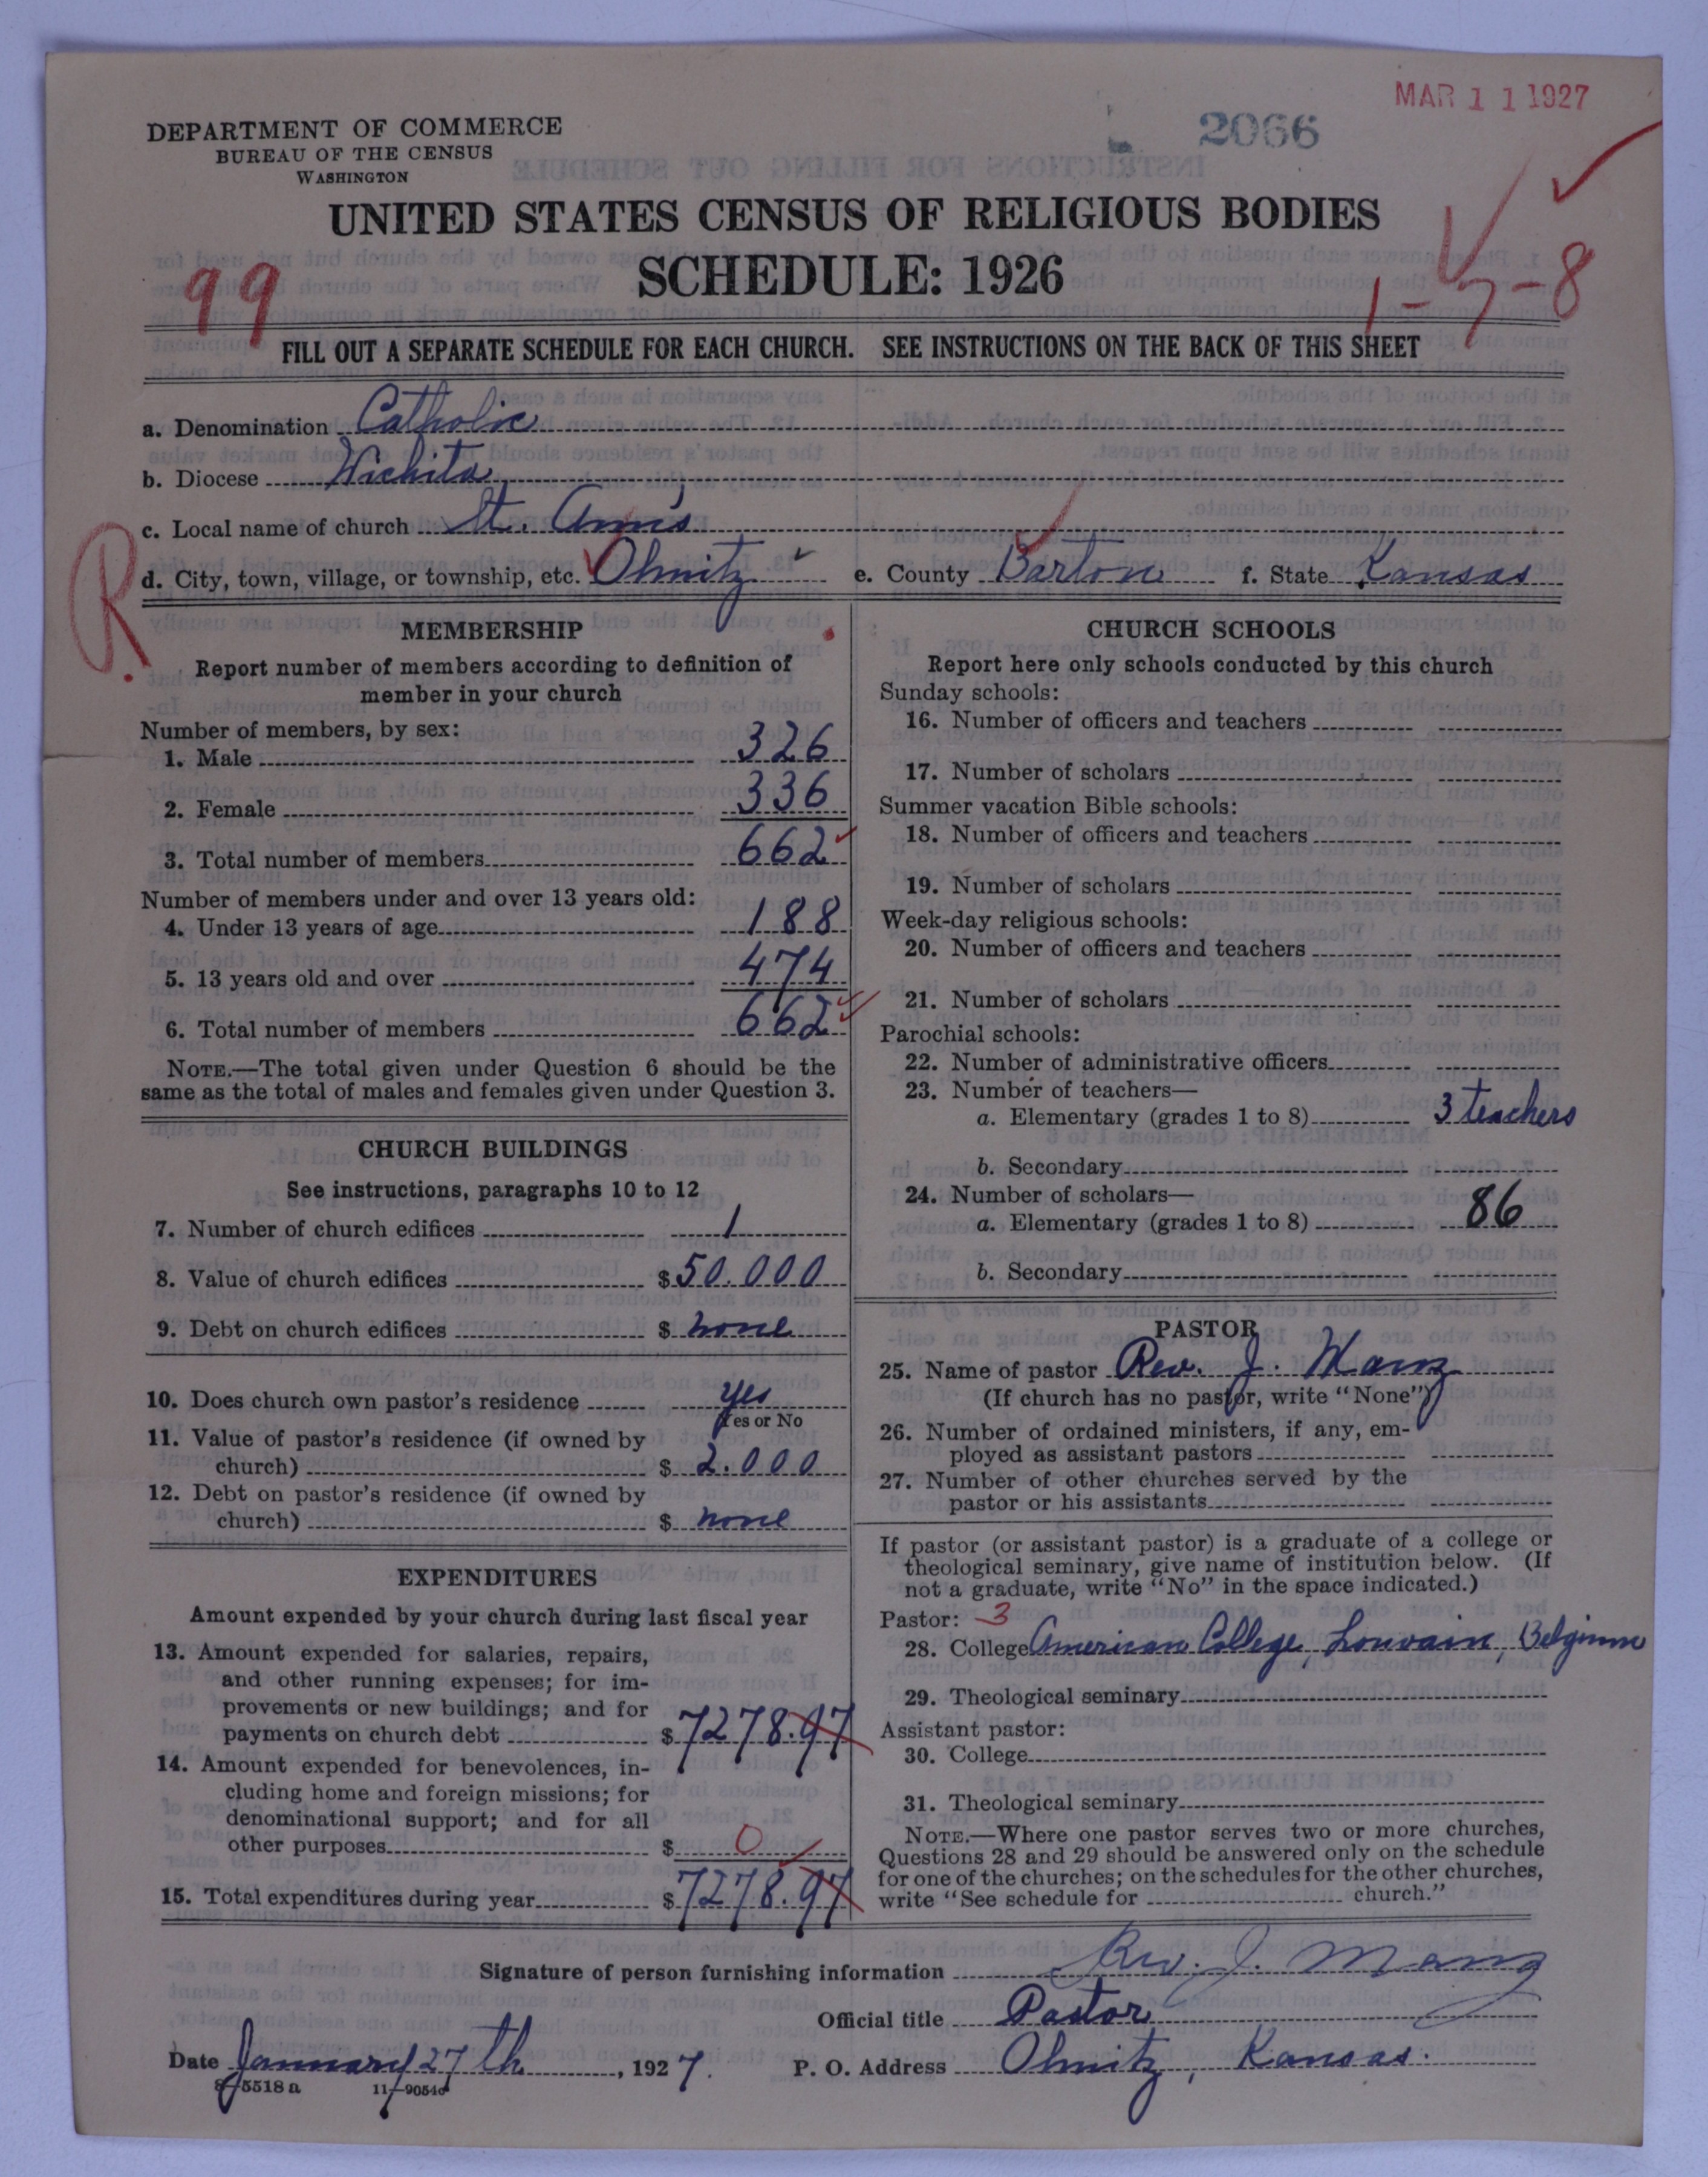 MAR 11 1927
2066
DEPARTMENT OF COMMERCE
BUREAU OF THE CENSUS
WASHINGTON
UNITED STATES CENSUS OF RELIGIOUS BODIES
SCHEDULE: 1926
99
1-7-8
FILL OUT A SEPARATE SCHEDULE FOR EACH CHURCH. SEE INSTRUCTIONS ON THE BACK OF THIS SHEET
a. Denomination Catholic
b. Diocese Wichita
c. Local name of church St. Ann's
d. City, town, village, or township, etc. Olmitz e. County Barton f. State Kansas
R.
MEMBERSHIP
Report number of members according to definition of
member in your church
Number of members, by sex:
1. Male 326
2. Female 336
3. Total number of members 662
Number of members under and over 13 years old:
4. Under 13 years of age 188
5. 13 years old and over 474
6. Total number of members 662
NOTE.—The total given under Question 6 should be the
same as the total of males and females given under Question 3.
CHURCH BUILDINGS
See instructions, paragraphs 10 to 12
7. Number of church edifices 1
8. Value of church edifices $50.000
9. Debt on church edifices $ none
10. Does church own pastor's residence yes
Yes or No
11. Value of pastor's residence (if owned by
church) $ 2.000
12. Debt on pastor's residence (if owned by
church) $ none
EXPENDITURES
Amount expended by your church during last fiscal year
13. Amount expended for salaries, repairs,
and other running expenses; for im-
provements or new buildings; and for
payments on church debt $7278.97
14. Amount expended for benevolences, in-
cluding home and foreign missions; for
denominational support; and for all
other purposes $ 0
15. Total expenditures during year $7278.97
CHURCH SCHOOLS
Report here only schools conducted by this church
Sunday schools:
16. Number of officers and teachers
17. Number of scholars
Summer vacation Bible schools:
18. Number of officers and teachers
19. Number of scholars
Week-day religious schools:
20. Number of officers and teachers
21. Number of scholars
Parochial schools:
22. Number of administrative officers
23. Number of teachers—
a. Elementary (grades 1 to 8) 3 teachers
b. Secondary
24. Number of scholars—
a. Elementary (grades 1 to 8) 86
b. Secondary
PASTOR
25. Name of pastor Rev. J. Manz
(If church has no pastor, write "None")
26. Number of ordained ministers, if any, em-
ployed as assistant pastors
27. Number of other churches served by the
pastor or his assistants
If pastor (or assistant pastor) is a graduate of a college or
theological seminary, give name of institution below. (If
not a graduate, write "No" in the space indicated.)
Pastor: 3
28. College American College, Louvain, Belgium
29. Theological seminary
Assistant pastor:
30. College
31. Theological seminary
NOTE.—Where one pastor serves two or more churches,
Questions 28 and 29 should be answered only on the schedule
for one of the churches; on the schedules for the other churches,
write "See schedule for church."
Signature of person furnishing information Rev. J. Manz
Official title Pastor
Date January 27th, 1927. P. O. Address Olmitz, Kansas.
8-5518 a 11-9054